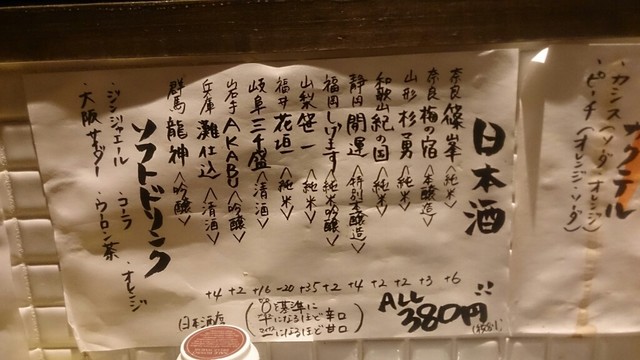 日本酒
奈良 篠峯 <純米>
奈良 梅の宿 <本醸造>
山形 杉勇 <純米>
和歌山 紀の国 <純米>
静岡 開運 <特別本醸造>
福岡 しげます <純米吟醸>
山梨 笹一 <純米>
福井 花垣 <純米>
岐阜 三千盛 <清酒>
岩手 AKABU <吟醸>
兵庫 灘仕込 <清酒>
群馬 龍神 <吟醸>
+6
+3
+2
+2
+4
+2
+35
-20
+16
+2
+4
ALL 380円
(税別)
日本酒度
0を基準に
+になるほど辛口
になるほど甘口
ソフトドリンク
・ジンジャエール ・コーラ ・オレンジ
・大阪サイダー ・ウーロン茶
カクテル
・カシス(ソーダ・オレンジ)
・ピーチ(オレンジ・ソーダ)